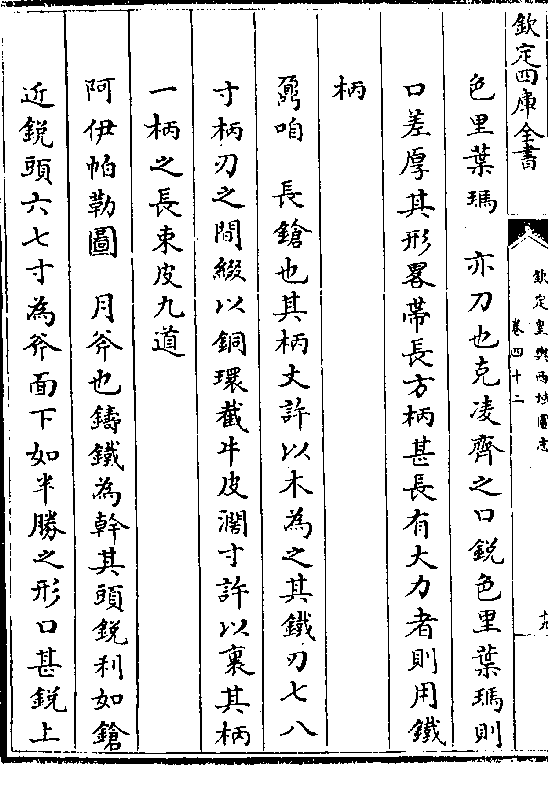 欽定四庫全書
欽定皇輿西域圖志
卷四十二
十九
色里葉瑪　亦刀也克凌齊之口鋭色里葉瑪則
口差厚其形畧帶長方柄甚長有大力者則用鐵
柄
鼐咱　長鎗也其柄丈許以木為之其鐵刃七八
寸柄刃之間綴以銅環截牛皮濶寸許以裹其柄
一柄之長束皮九道
阿伊帕勒圖　月斧也鑄鐵為幹其頭鋭利如鎗
近鋭頭六七寸為斧面下如半勝之形口甚鋭上